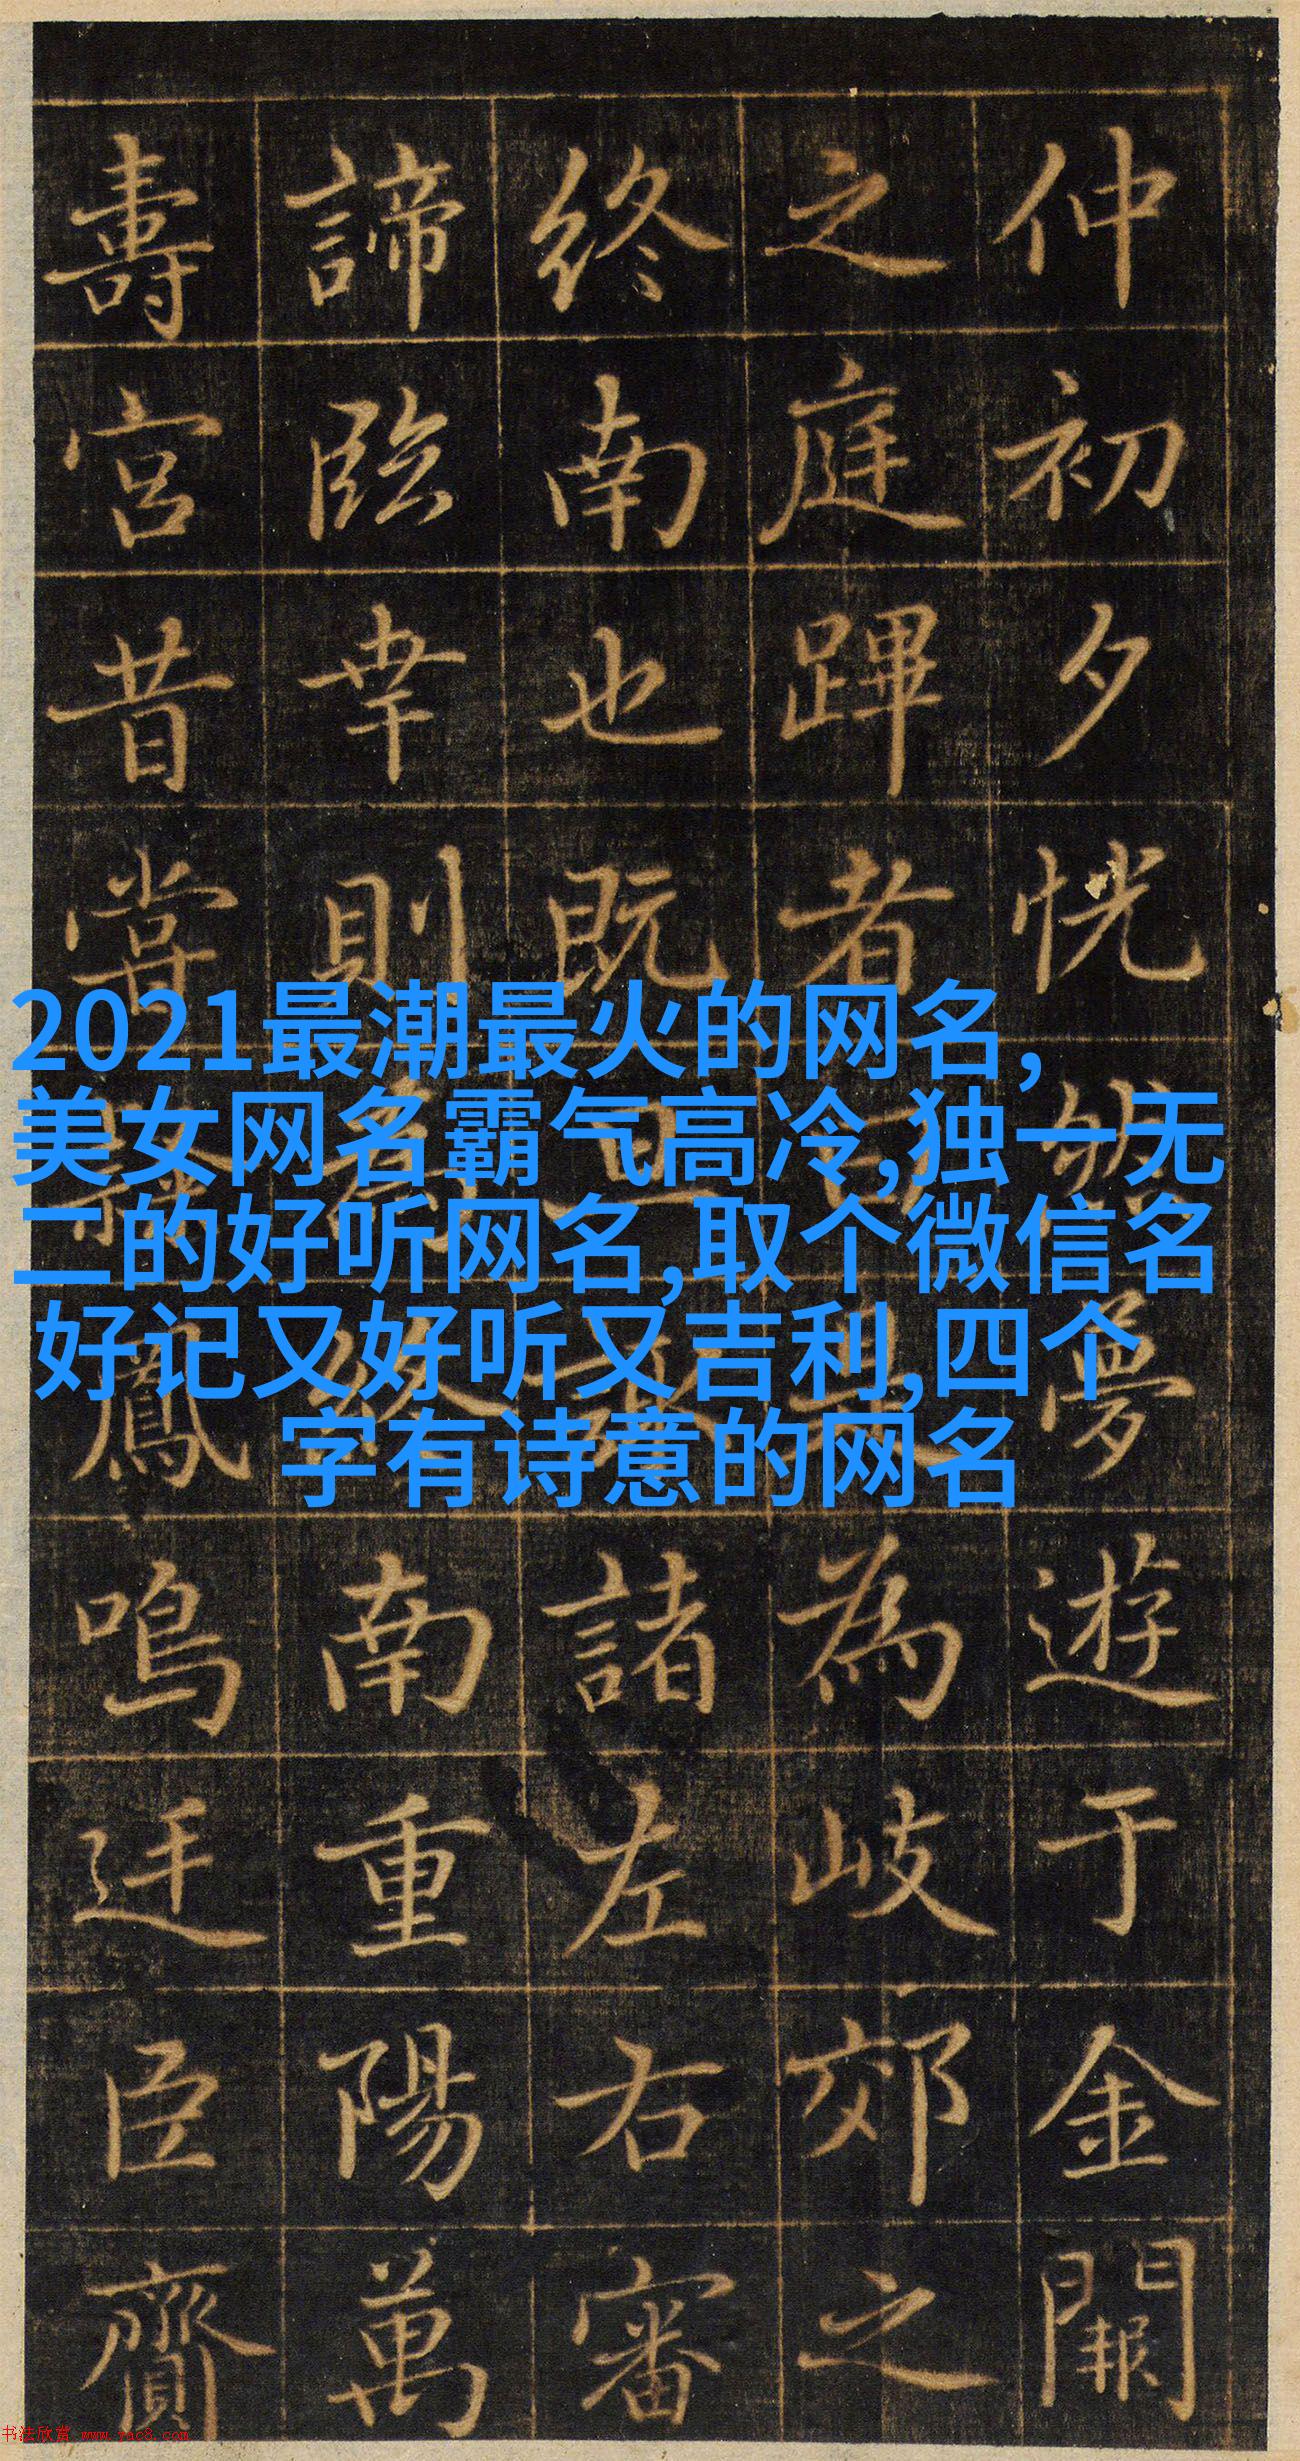 仲初夕恍夢遊于金闕
之庭蹕者為岐郊之
終南也既諸左右審
諦臨幸則南重陽萬
壽宮昔嘗鳳鳴臣齎
2021最潮最火的网名,
美女网名霸气高冷,独一无
二的好听网名,取个微信名
好记又好听又吉利,四个
字有诗意的网名
书法欣赏 www.yac8.com